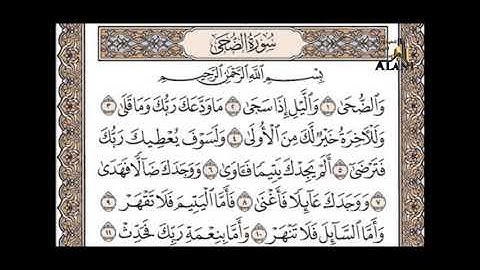 سُورَةُ الضُّحَىٰ
ALANI
بِسْمِ اللَّهِ الرَّحْمَٰنِ الرَّحِيمِ
وَالضُّحَىٰ ١ وَاللَّيْلِ إِذَا سَجَىٰ ٢ مَا وَدَّعَكَ رَبُّكَ وَمَا قَلَىٰ ٣
وَلَلْآخِرَةُ خَيْرٌ لَّكَ مِنَ الْأُولَىٰ ٤ وَلَسَوْفَ يُعْطِيكَ رَبُّكَ
فَتَرْضَىٰ ٥ أَلَمْ يَجِدْكَ يَتِيمًا فَآوَىٰ ٦ وَوَجَدَكَ ضَالًّا فَهَدَىٰ
٧ وَوَجَدَكَ عَائِلًا فَأَغْنَىٰ ٨ فَأَمَّا الْيَتِيمَ فَلَا تَقْهَرْ ٩
وَأَمَّا السَّائِلَ فَلَا تَنْهَرْ ١٠ وَأَمَّا بِنِعْمَةِ رَبِّكَ فَحَدِّثْ ١١